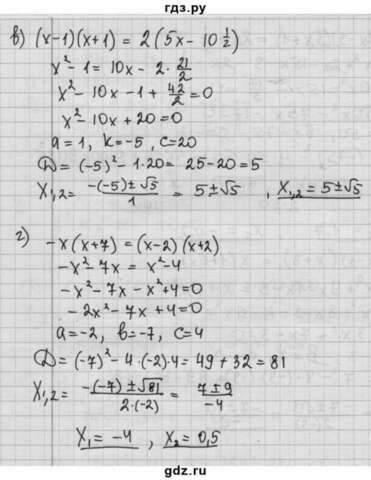 гдз.ру
в) (x-1)(x+1) = 2(5x - 10 1/2)
x² - 1 = 10x - 2 · 21/2
x² - 10x - 1 + 42/2 = 0
x² - 10x + 20 = 0
a = 1, k = -5, c = 20
D = (-5)² - 1·20 = 25 - 20 = 5
X₁,₂ = (-(-5) ± √5)/1 = 5 ± √5, X₁,₂ = 5 ± √5
г) -x(x+7) = (x-2)(x+2)
-x² - 7x = x² - 4
-x² - 7x - x² + 4 = 0
-2x² - 7x + 4 = 0
a = -2, b = -7, c = 4
D = (-7)² - 4·(-2)·4 = 49 + 32 = 81
X₁,₂ = (-(-7) ± √81)/(2·(-2)) = (7 ± 9)/(-4)
X₁ = -4, X₂ = 0,5
gdz.ru